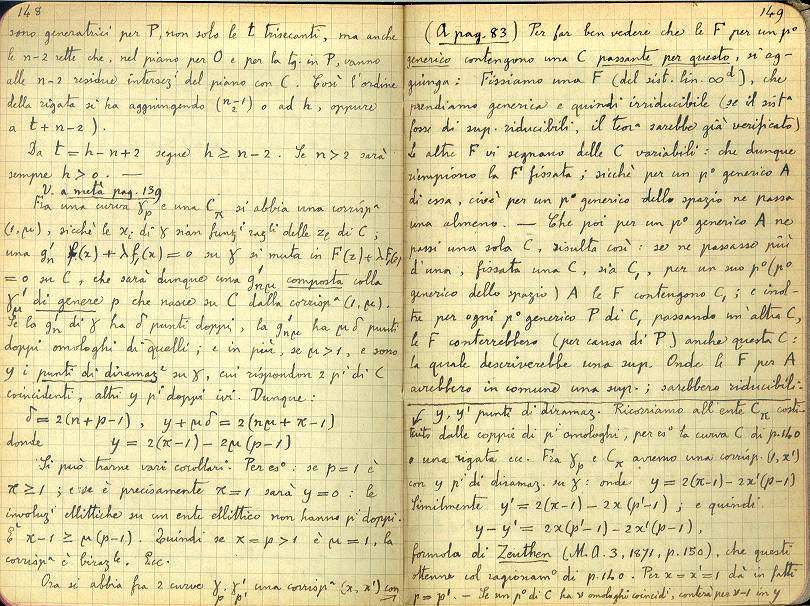 148
sono generatrici per P, non solo le t trisecanti, ma anche
le n-2 rette che, nel piano per O e per la tg. in P, vanno
alle n-2 residue intersezi del piano con C. Così l'ordine
della rigata si ha aggiungendo (n-1 2) o ad h, oppure
a t+n-2).
Da t = h-n+2 segue h ≥ n-2. Se n>2 sarà
sempre h>0. —
V. a metà pag. 139
Fra una curva γp e una Cπ si abbia una corrispa
(1,μ), sicchè le xi di γ sian funzi razli delle zl di C;
una g'n f(x) + λf1(x) = 0 su γ si muta in F(z) + λF1(z)
= 0 su C, che sarà dunque una g'nμ composta colla
γ'μ di genere p che nasce su C dalla corrispa (1,μ).
Se la g'n di γ ha δ punti doppi, la g'nμ ha μδ punti
doppi omologhi di quelli; e in più, se μ>1, e sono
y i punti di diramaze su γ, cui rispondon 2 pi di C
coincidenti, altri y pi doppi ivi. Dunque:
δ = 2(n+p-1), y+μδ = 2(nμ+π-1)
donde y = 2(π-1) - 2μ(p-1)
Si può trarne vari corollari. Per eso: se p=1 è
π ≥ 1; e se è precisamente π=1 sarà y=0: le
involuzi ellittiche su un ente ellittico non hanno pi doppi.
È π-1 ≥ μ(p-1). Quindi se π=p>1 è μ=1, la
corrispa è birazle. Ecc.
Ora si abbia fra 2 curve γp γ'p' una corrispa (x, x') con
149
(A pag. 83) Per far ben vedere che le F per un po
generico contengono una C passante per questo, si ag-
giunga: Fissiamo una F (del sist. lin. ∞d), che
prendiamo generica e quindi irriducibile (se il sista
fosse di sup. riducibili, il teora sarebbe già verificato)
Le altre F vi segnano delle C variabili: che dunque
riempiono la F fissata; sicchè per un po generico A
di essa, cioè per un po generico dello spazio ne passa
una almeno. — Che poi per un po generico A ne
passi una sola C, risulta così: se ne passasse più
d'una, fissata una C, sia C1, per un suo po (po
generico dello spazio) A le F contengono C1; e inol-
tre per ogni po generico P di C1 passando un'altra C,
le F conterrebbero (per causa di P) anche questa C:
la quale descriverebbe una sup. Onde le F per A
avrebbero in comune una sup.; sarebbero riducibili.
y, y' punti di diramaz. Ricorriamo all'ente Cπ costi-
tuito dalle coppie di pi omologhi, per eso la curva C di p.140
o una rigata ecc. Fra γp e Cπ avremo una corrisp. (1,x')
con y pi di diramaz. su γ: onde y = 2(π-1) - 2x'(p-1)
Similmente y' = 2(π-1) - 2x(p'-1); e quindi
y-y' = 2x(p'-1) - 2x'(p-1),
formola di Zeuthen (M.A. 3, 1871, p.150), che questi
ottenne col ragionamo di p.140. Per x=x'=1 dà in fatti
p=p'. — Se un po di C ha ν omologhi coincidi, conterà per ν-1 in y